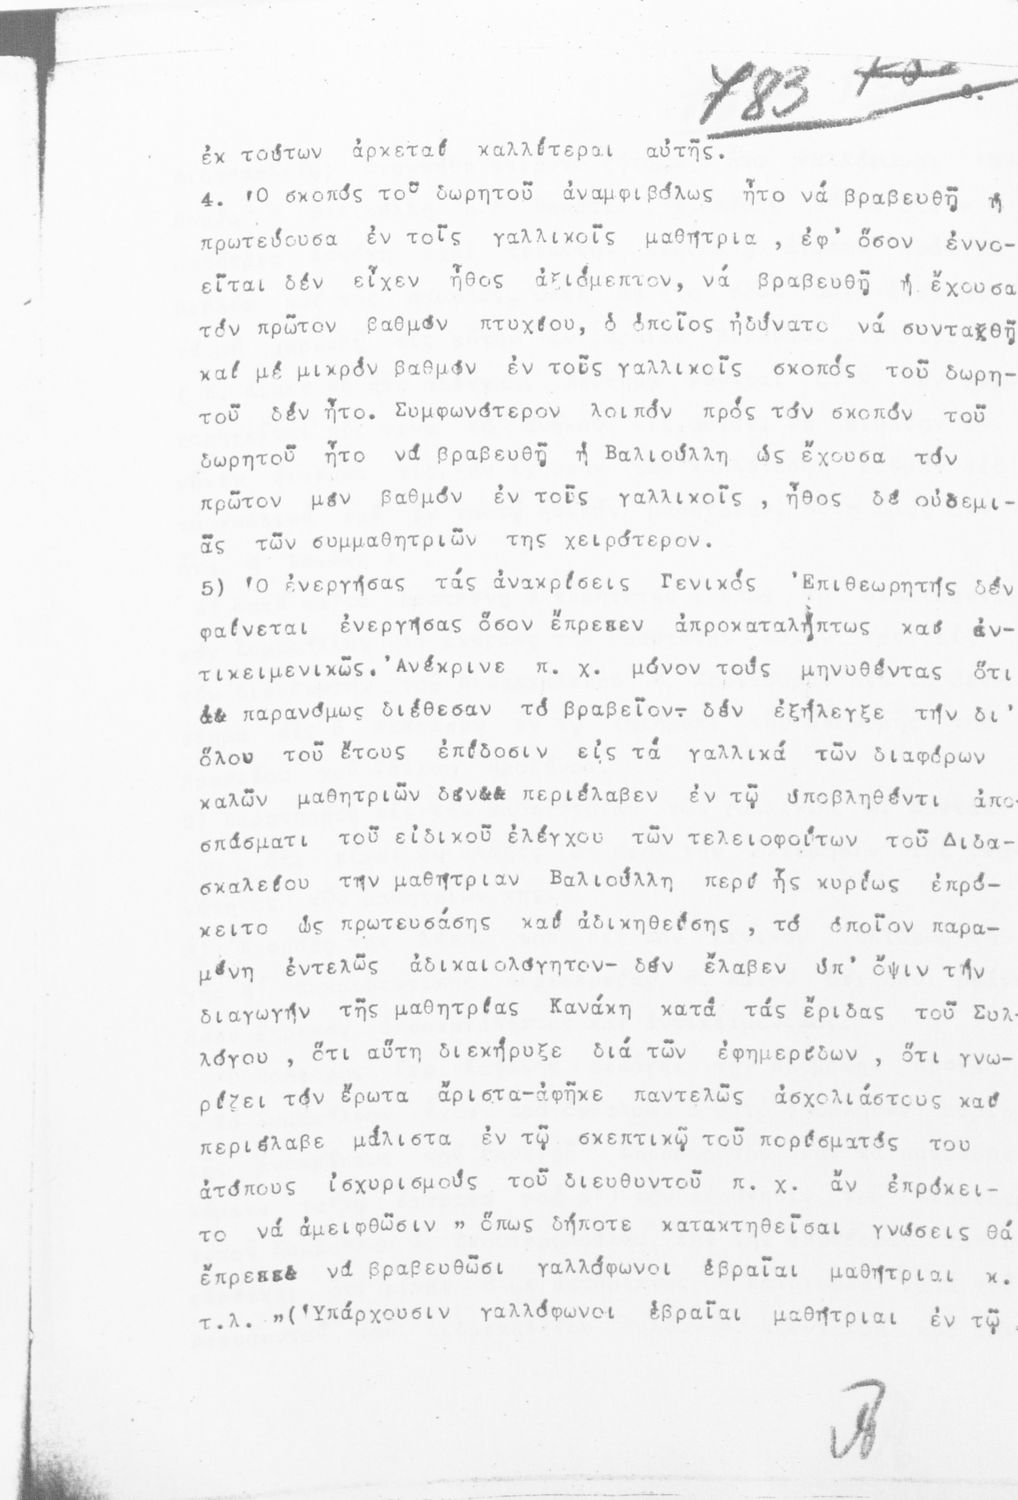 783
ἐκ τούτων ἀρκεταί καλλίτεραι αὐτῆς.
4. Ὁ σκοπός τοῦ δωρητοῦ ἀναμφιβόλως ἦτο νά βραβευθῇ ἡ
πρωτεύουσα ἐν τοῖς γαλλικοῖς μαθήτρια , ἐφ' ὅσον ἐννο-
εῖται δέν εἶχεν ἦθος ἀξιόμεπτον, νά βραβευθῇ ἡ ἔχουσα
τόν πρῶτον βαθμόν πτυχίου, ὁ ὁποῖος ἠδύνατο νά συνταχθῇ
καί μέ μικρόν βαθμόν ἐν τοῖς γαλλικοῖς σκοπός τοῦ δωρη-
τοῦ δέν ἦτο. Συμφωνότερον λοιπόν πρός τόν σκοπόν τοῦ
δωρητοῦ ἦτο νά βραβευθῇ ἡ Βαλιούλλη ὡς ἔχουσα τόν
πρῶτον μέν βαθμόν ἐν τοῖς γαλλικοῖς , ἦθος δέ οὐδεμι-
ᾶς τῶν συμμαθητριῶν της χειρότερον.
5) Ὁ ἐνεργήσας τάς ἀνακρίσεις Γενικός Ἐπιθεωρητής δέν
φαίνεται ἐνεργήσας ὅσον ἔπρεπεν ἀπροκαταλήπτως καί ἀν-
τικειμενικῶς. Ἀνέκρινε π. χ. μόνον τούς μηνυθέντας ὅτι
παρανόμως διέθεσαν τό βραβεῖον- δέν ἐξήλεγξε τήν δι'
ὅλου τοῦ ἔτους ἐπίδοσιν εἰς τά γαλλικά τῶν διαφόρων
καλῶν μαθητριῶν δέν περιέλαβεν ἐν τῷ ὑποβληθέντι ἀπο-
σπάσματι τοῦ εἰδικοῦ ἐλέγχου τῶν τελειοφοίτων τοῦ Διδα-
σκαλείου τήν μαθήτριαν Βαλιούλλη περί ἧς κυρίως ἐπρό-
κειτο ὡς πρωτευσάσης καί ἀδικηθείσης , τό ὁποῖον παρα-
μένη ἐντελῶς ἀδικαιολόγητον- δέν ἔλαβεν ὑπ' ὄψιν τήν
διαγωγήν τῆς μαθητρίας Κανάκη κατά τάς ἔριδας τοῦ Συλ-
λόγου , ὅτι αὕτη διεκήρυξε διά τῶν ἐφημερίδων , ὅτι γνω-
ρίζει τόν ἔρωτα ἄριστα-ἀφῆκε παντελῶς ἀσχολιάστους καί
περιέλαβε μάλιστα ἐν τῷ σκεπτικῷ τοῦ πορίσματός του
ἀτόπους ἰσχυρισμούς τοῦ διευθυντοῦ π. χ. ἄν ἐπρόκει-
το νά ἀμειφθῶσιν " ὅπως δήποτε κατακτηθεῖσαι γνώσεις θά
ἔπρεπε νά βραβευθῶσι γαλλόφωνοι ἑβραῖαι μαθήτριαι κ.
τ.λ. "(Ὑπάρχουσιν γαλλόφωνοι ἑβραῖαι μαθήτριαι ἐν τῷ